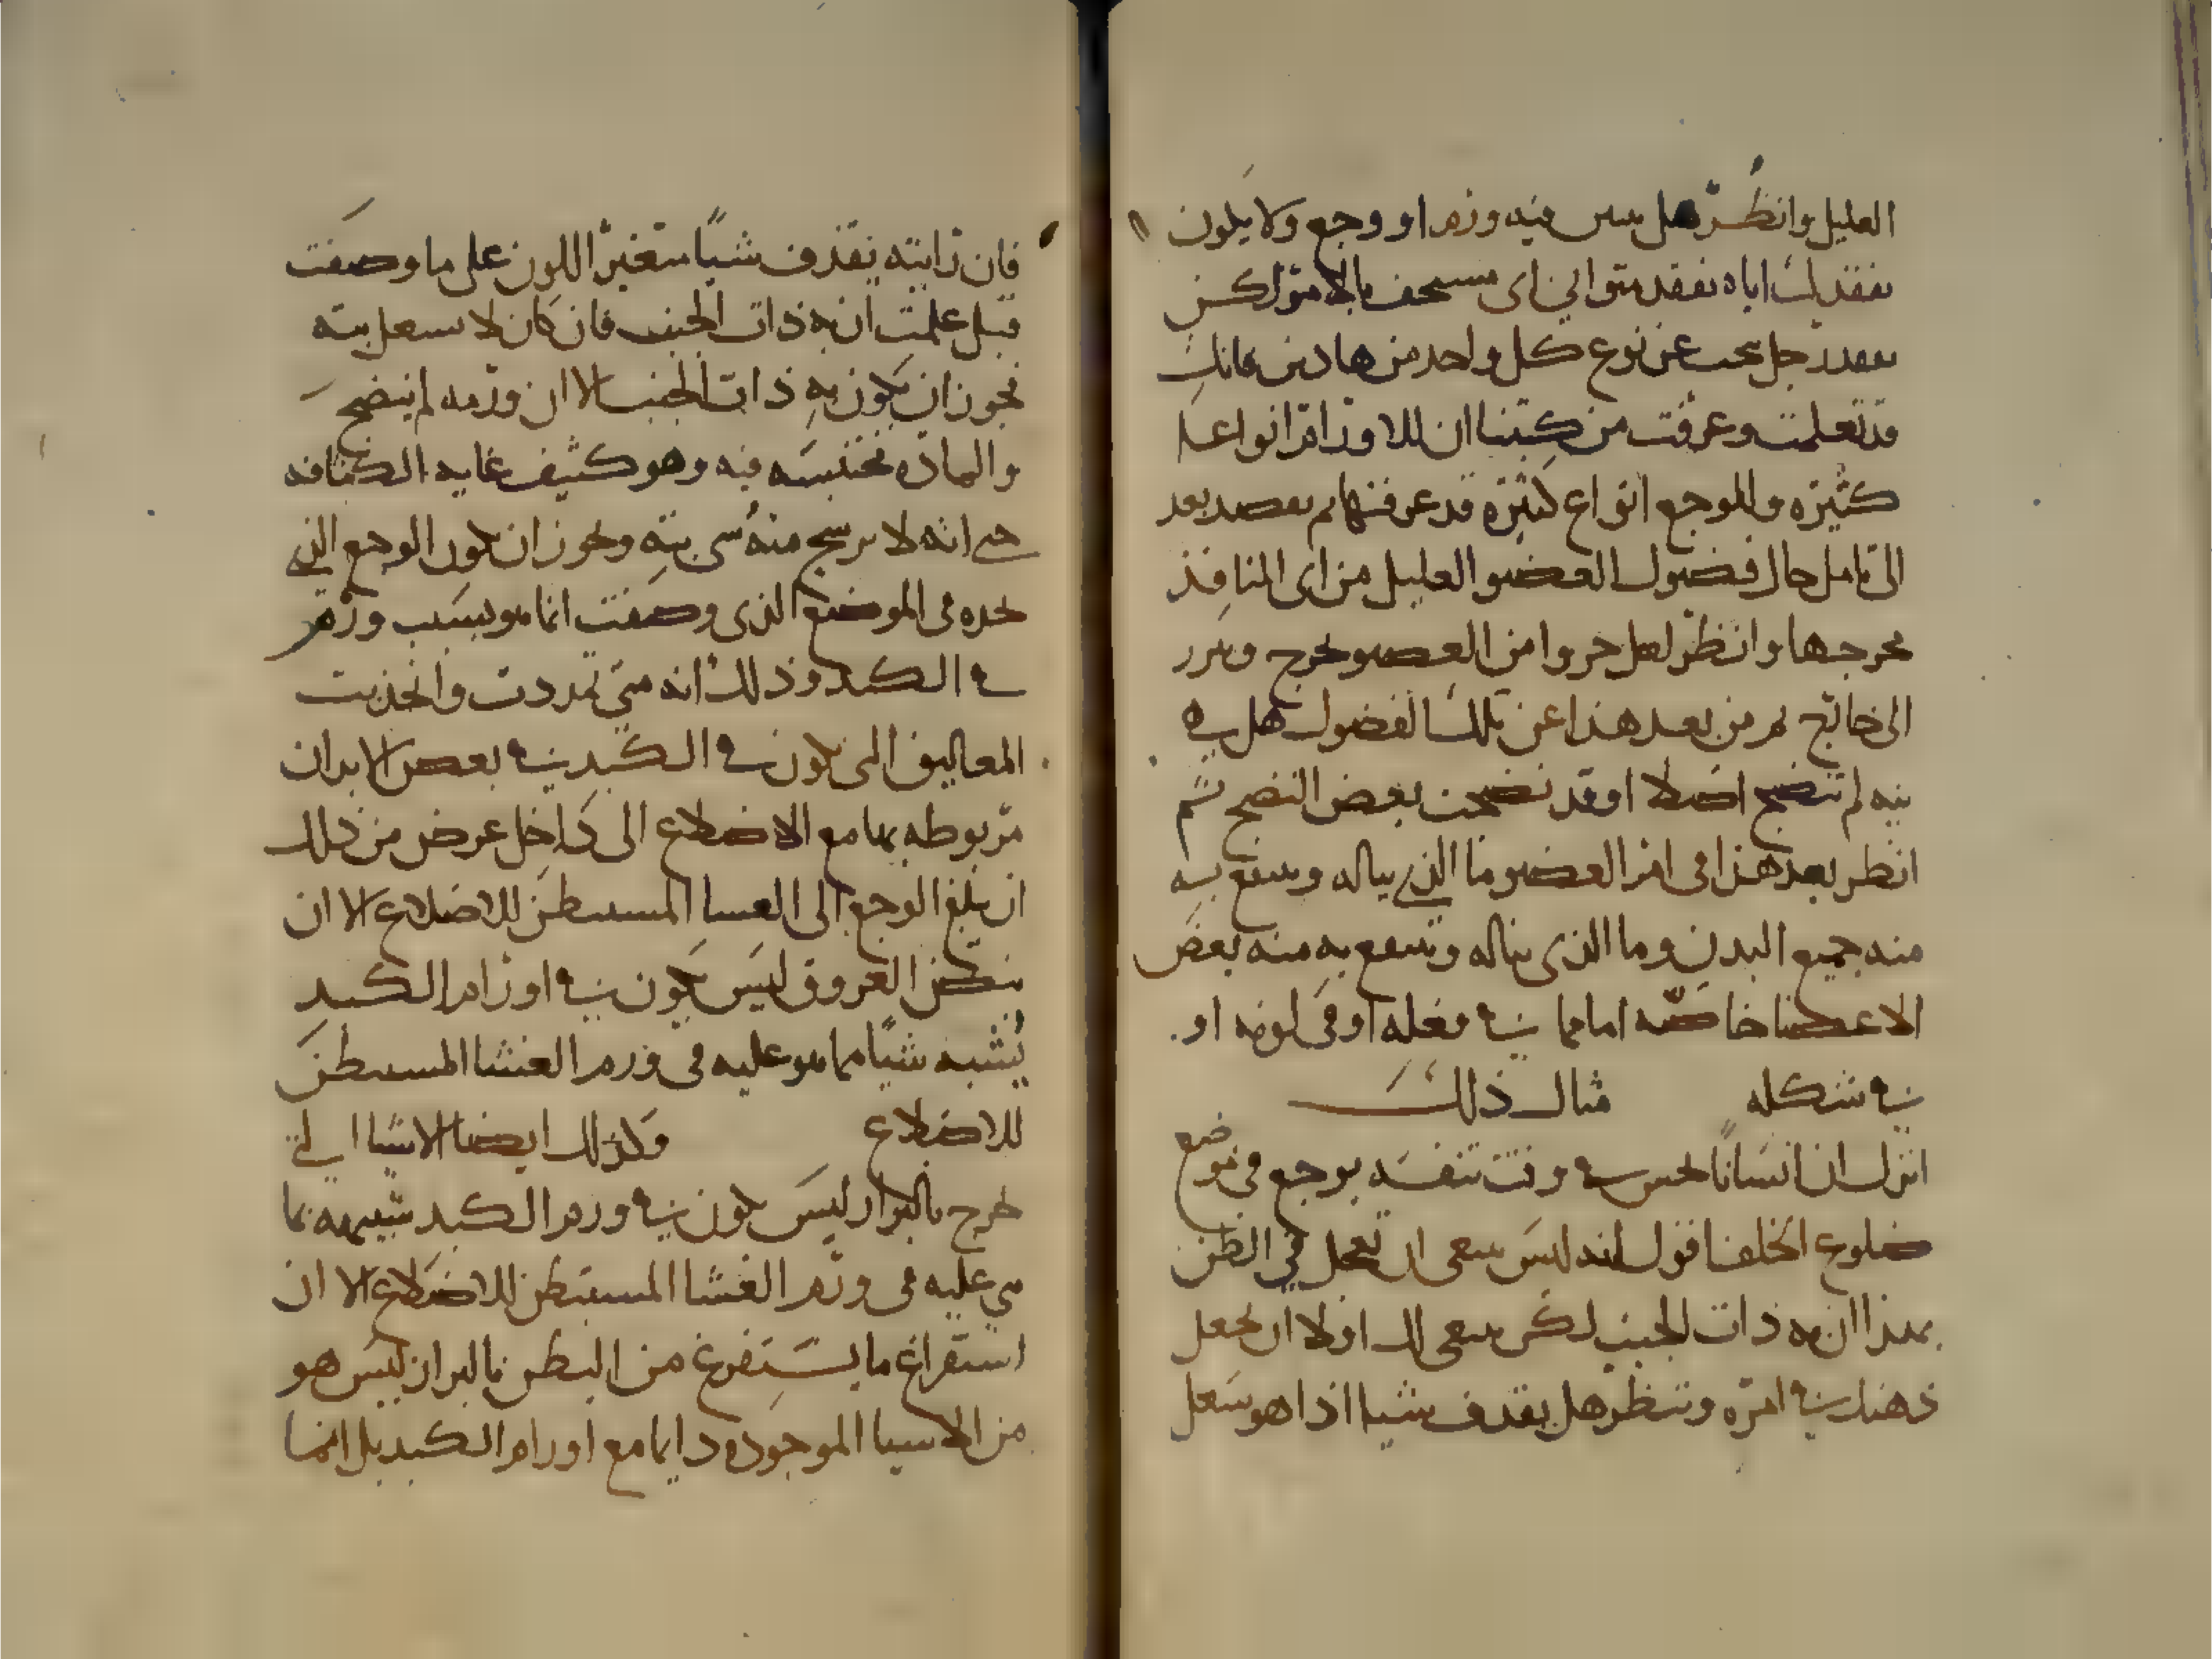 العليل وانظر هل يبين فيه ورم او وجع ولا يكون
تفقدك اياه تفقد متواني اى مستخف بالامور لكن
تفقد رجل يبحث عن نوع كل واحد من هاذين فانك
قد تعلمت وعرفت من كتبنا ان للاورام انواعا
كثيره وللوجع انواع كثيره قد عرفتها ثم تقصد بعد
الى تامل حال فضول العضو العليل من اى المنافذ
مخرجها وانظر لعل جزوا من العضو يخرج ويبرز
الى خارج ثم من بعد هذا عن تلك الفضول هل هي
نيه لم تنضج اصلا او قد نضجت بعض النضج ثم
انظر بعد هذا فى امر العضو ما الذي يناله وينتفع به
منه جميع البدن وما الذى يناله وينتفع به منه بعض
الاعضا خاصه اما مما في فعله او فى لونه او
في شكله مثال ذلك
انزل ان انسانا يحس في وقت تنفسه بوجع فى موضع
ضلوع الخلف اقول انه ليس ينبغى ان تعجل في الظن
بهذا ان به ذات الجنب لكن ينبغى لك اولا ان تجعل
ذهنك في امره وتنظر هل يقذف شيا اذا هو سعل
فان رايته يقذف شيًا متغير اللون على ما وصفت
قبل علمت ان به ذات الجنب فان كان لا يسعل بته
فيجوز ان يكون به ذات الجنب الا ان ورمه لم ينضج
والماده محتبسه فيه وهو كثيف غايه الكثافه
حتى انه لا يرشح منه شى بته ويجوز ان يكون الوجع الذي
يجده فى الموضع الذى وصفت انما هو بسبب ورم
في الكبد وذلك انه متى تمددت وانجذبت
المعاليق التى تكون في الكبد في بعض الابدان
مربوطه بها مع الاضلاع الى داخل عرض من ذلك
ان يبلغ الوجع الى الغشا المستبطن للاضلاع الا ان
نبض العروق ليس يكون في اورام الكبد
يُشبه شيًا مما هو عليه فى ورم الغشا المستبطن
للاضلاع وكذلك ايضا الاشيا التي
تخرج بالبراز ليس تكون في ورم الكبد شبيهه بما
هي عليه فى ورم الغشا المستبطن للاضلاع الا ان
استفراغ ما يستفرغ من البطن بالبراز ليس هو
من الاشيا الموجوده دايما مع اورام الكبد بل انما